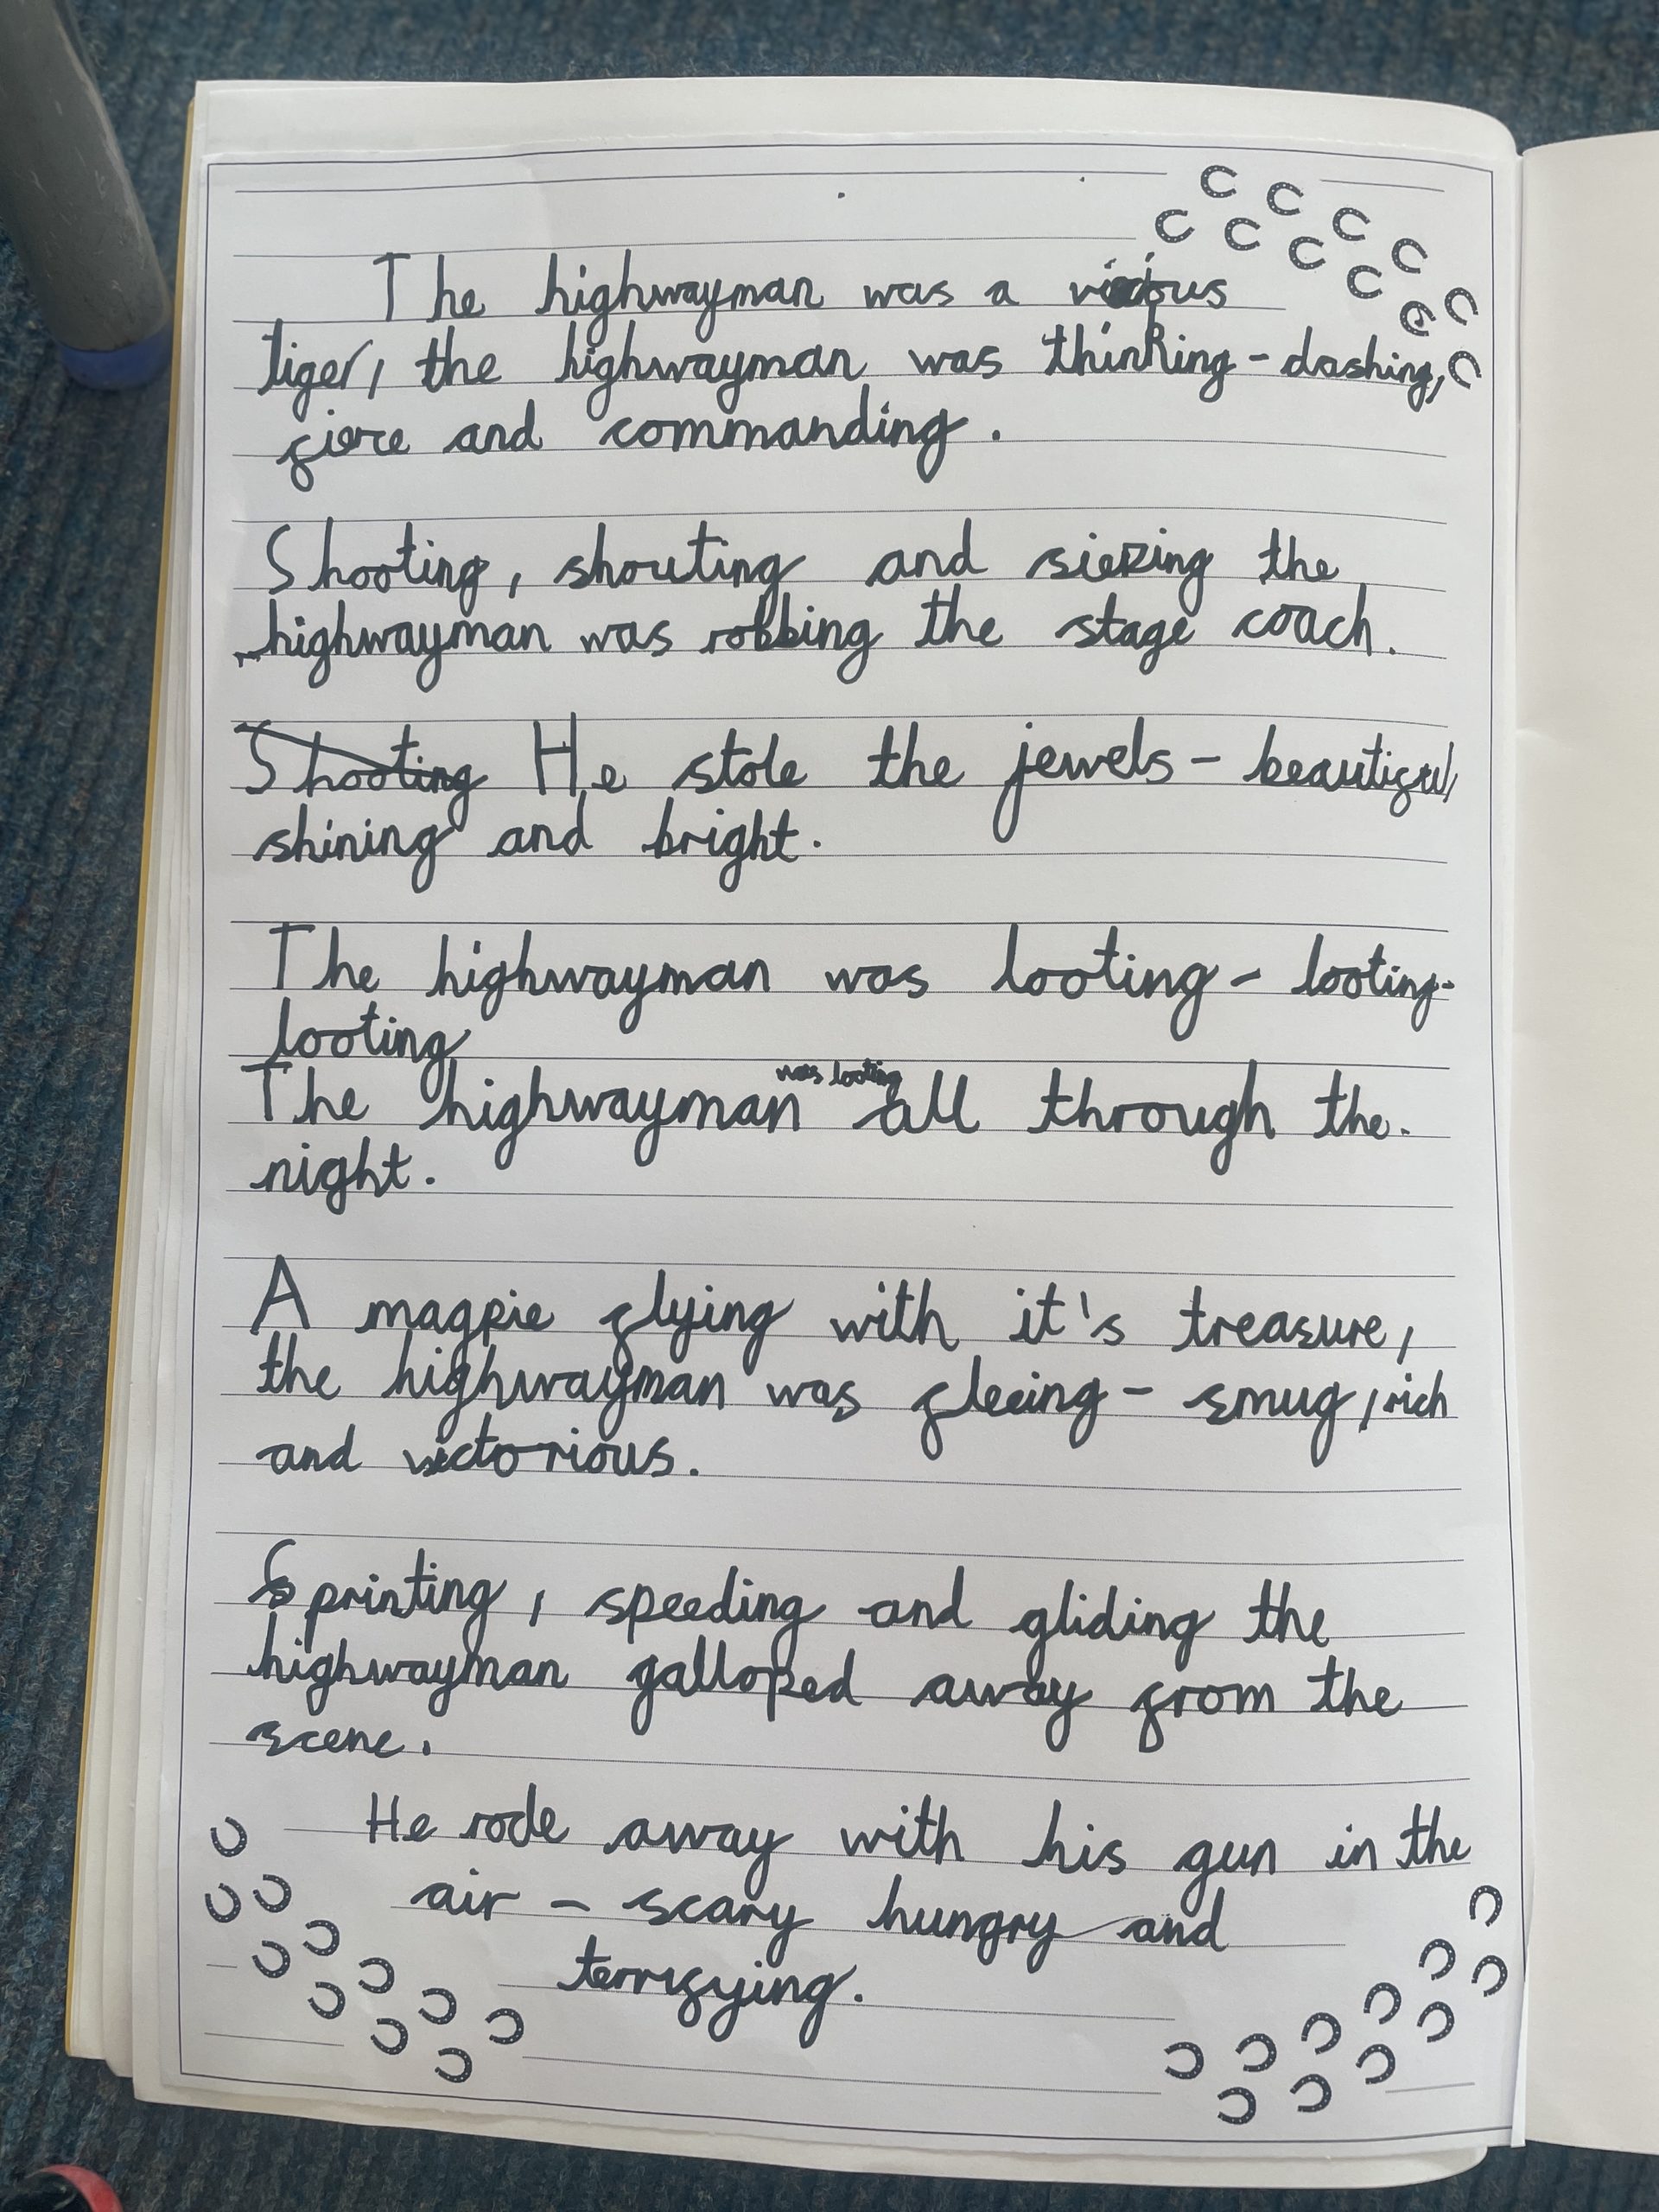 The highwayman was a vicious
tiger, the highwayman was thinking - dashing,
fierce and commanding.
Shooting, shouting and siezing the
highwayman was robbing the stage coach.
Shooting He stole the jewels - beautiful,
shining and bright.
The highwayman was looting - looting-
looting
was looting
The highwayman all through the.
night.
A magpie flying with it's treasure,
the highwayman was fleeing - smug, rich
and victorious.
Sprinting, speeding and gliding the
highwayman galloped away from the
scene.
He rode away with his gun in the
air - scary hungry and
terrifying.